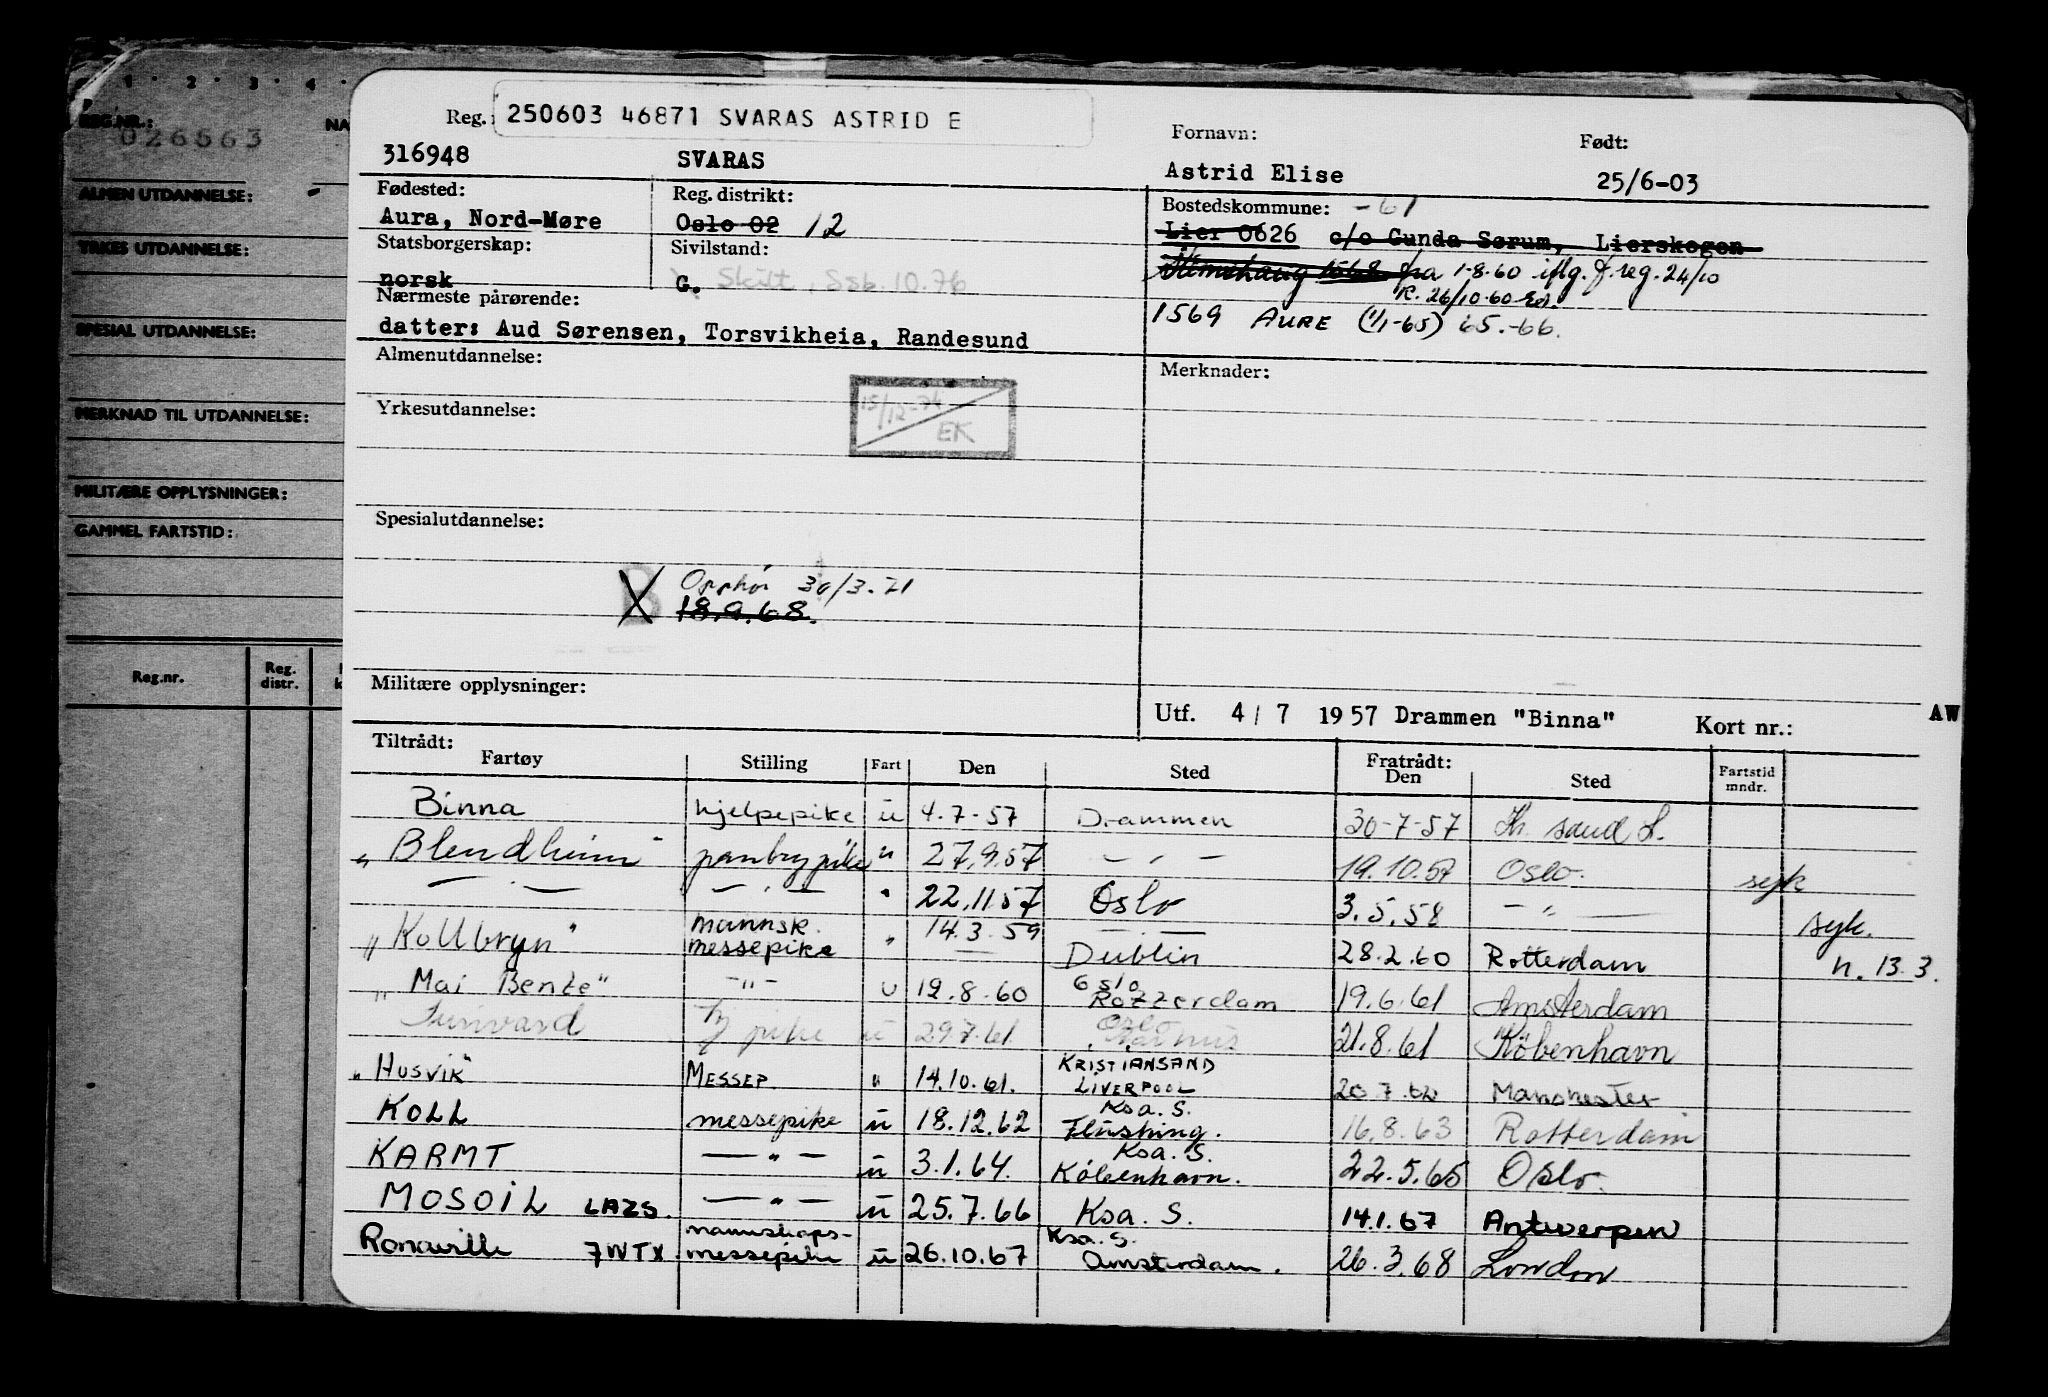 1 · 2 · 3 · 4 ·
REG.NR.: NA
026563
ALMEN UTDANNELSE:
YRKES UTDANNELSE:
SPESIAL UTDANNELSE:
MERKNAD TIL UTDANNELSE:
MILITÆRE OPPLYSNINGER:
GAMMEL FARTSTID:
Reg.nr. Reg. distr. k
Reg. 250603 46871 SVARAS ASTRID E
Fornavn: Født:
316948 SVARAS Astrid Elise 25/6-03
Fødested: Reg. distrikt: Bostedskommune: -61
Aura, Nord-Møre Oslo 02 12 Lier 0626 c/o Gunda Sørum, Lierskogen
Statsborgerskap: Sivilstand:
norsk G. Skilt, Ssb. 10.76 1568 fra 1-8.60 iflg. f. reg. 24/10
Nærmeste pårørende: R. 26/10-60
datter: Aud Sørensen, Torsvikheia, Randesund 1569 AURE (1/1-65) 65.-66.
Almenutdannelse: Merknader:
15/12-74
EK
Yrkesutdannelse:
Spesialutdannelse:
B Opphør 30/3.71
18.9.68.
Militære opplysninger:
Utf. 4 / 7 1957 Drammen "Binna" Kort nr.: AW
Tiltrådt: Fratrådt:
Fartøy Stilling Fart Den Sted Den Sted Fartstid mndr.
Binna hjelpepike u 4.7-57 Drammen 30-7-57 Kr. sand S.
"Blendheim" pantrypike " 27.9.57 — " — 19.10.57 Oslo. syk
— " — — " — " 22.11.57 Oslo 3.5.58 — " — syk.
"Kollbryn" mannsk. messepike " 14.3.59 — — Dublin 28.2.60 Rotterdam n. 13.3.
"Mai Bente" — " — u 12.8.60 Oslo Rotterdam 19.6.61 Amsterdam
pike u 29.7.61 Oslo Aarhus 21.8.61 København
"HUSVIK" MESSEP. " 14.10.61. KRISTIANSAND LIVERPOOL 20.7.62 Manchester
KOLL messepike u 18.12.62 Ksa. S. Flushing. 16.8.63 Rotterdam
KARMT — " — u 3.1.64. Ksa. S. København. 22.5.65 Oslo.
MOSOIL LAZS. — " — u 25.7.66 Ksa. S. 14.1.67 Antwerpen
Ronaville mannskaps- messepike u 26.10.67 Ksa. S. Amsterdam. 26.3.68 London